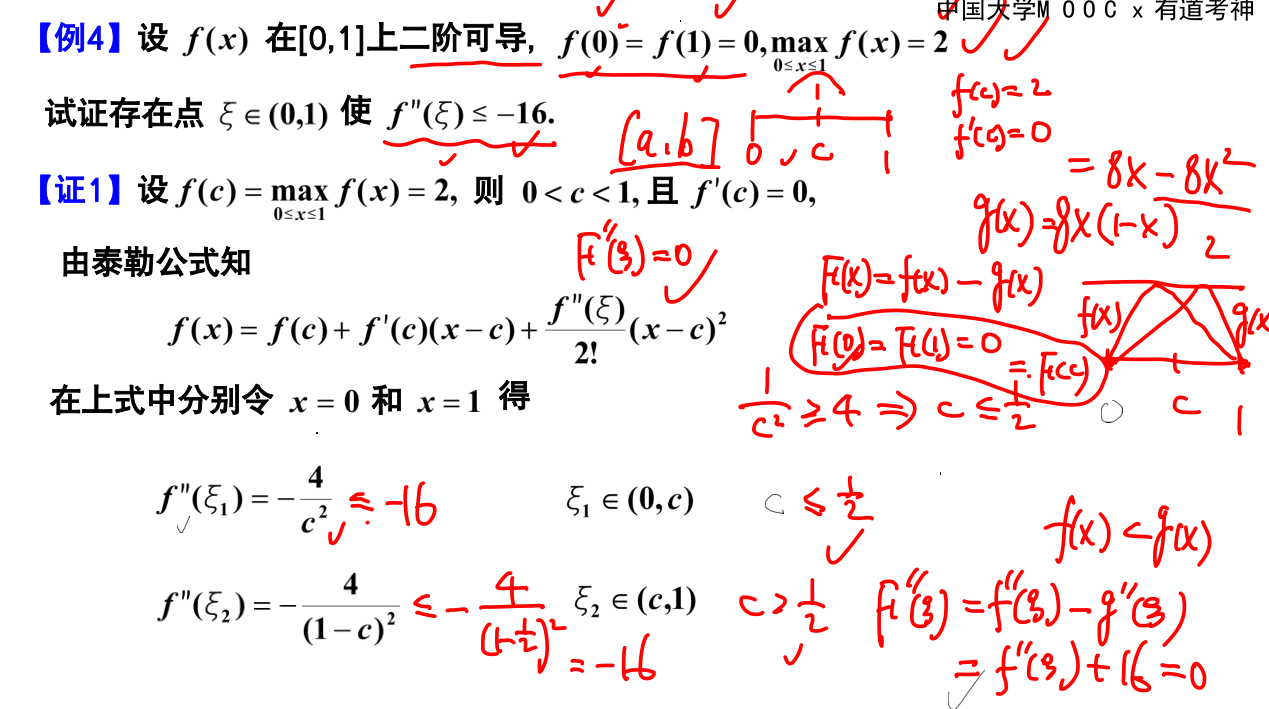 中国大学MOOC x 有道考神
【例4】设 f(x) 在[0,1]上二阶可导, f(0) = f(1) = 0, max_{0≤x≤1} f(x) = 2
试证存在点 ξ∈(0,1) 使 f″(ξ) ≤ −16.
[a,b]
0 c 1
f(c)=2
f'(c)=0
【证1】设 f(c) = max_{0≤x≤1} f(x) = 2, 则 0 < c < 1, 且 f'(c) = 0,
= 8x − 8x²
g(x)=8x(1-x)
2
由泰勒公式知
F″(ξ)=0
F(x)=f(x) − g(x)
f(x) = f(c) + f'(c)(x − c) + f″(ξ)/2! (x − c)²
F(0)= F(1)=0
= F(c)
f(x) g(x
0 c 1
在上式中分别令 x = 0 和 x = 1 得
1/c² ≥ 4 ⇒ c ≤ 1/2
f″(ξ₁) = − 4/c² ≤ -16 ξ₁ ∈ (0,c) c ≤ 1/2
f(x) < g(x)
f″(ξ₂) = − 4/(1 − c)² ≤ − 4/(1-1/2)² ξ₂ ∈ (c,1) c > 1/2
= -16
F″(ξ) = f″(ξ) − g″(ξ)
= f″(ξ)+16=0